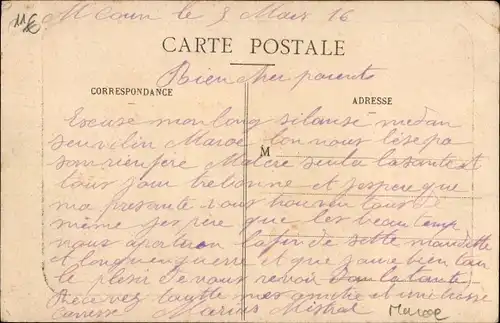 11€
M Coun le 3 Mars 16
CARTE POSTALE
Bien cher parents
CORRESPONDANCE
ADRESSE
M
Excuse mon long silanse me dan
seu vilin Maroc lon nous lése pa
son rien fére Malcré seula la santé et
tous jour tre bonne et jespere que
ma presante vous trouven tous de
même jespére que les beau temp
nous aporteron la fin de sette maudite
et longue guerre et que jaure bien tau
le plesir de vous revoir
Recevez toutte mes amitie et une grosse
Caresse Marius Mistral
Maroc